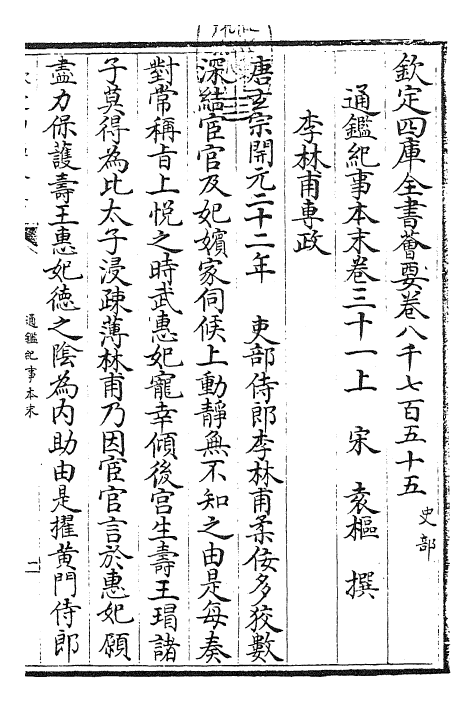 欽定四庫全書薈要卷八千七百五十五
史部
通鑑紀事本末卷三十一上　宋　袁樞　撰
李林甫專政
唐玄宗開元二十二年　吏部侍郎李林甫柔佞多狡數
深結宦官及妃嬪家伺候上動靜無不知之由是每奏
對常稱旨上悅之時武惠妃寵幸傾後宮生壽王瑁諸
子莫得為比太子浸疎薄林甫乃因宦官言於惠妃願
盡力保護壽王惠妃徳之陰為内助由是擢黄門侍郎
通鑑紀事本末